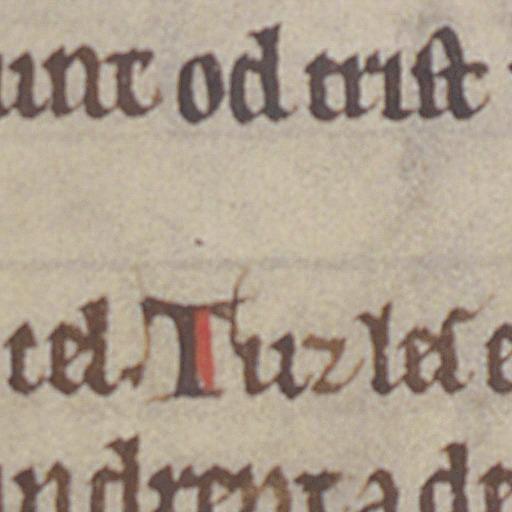 unt od trist
tel. Tuz les e
indrent ade